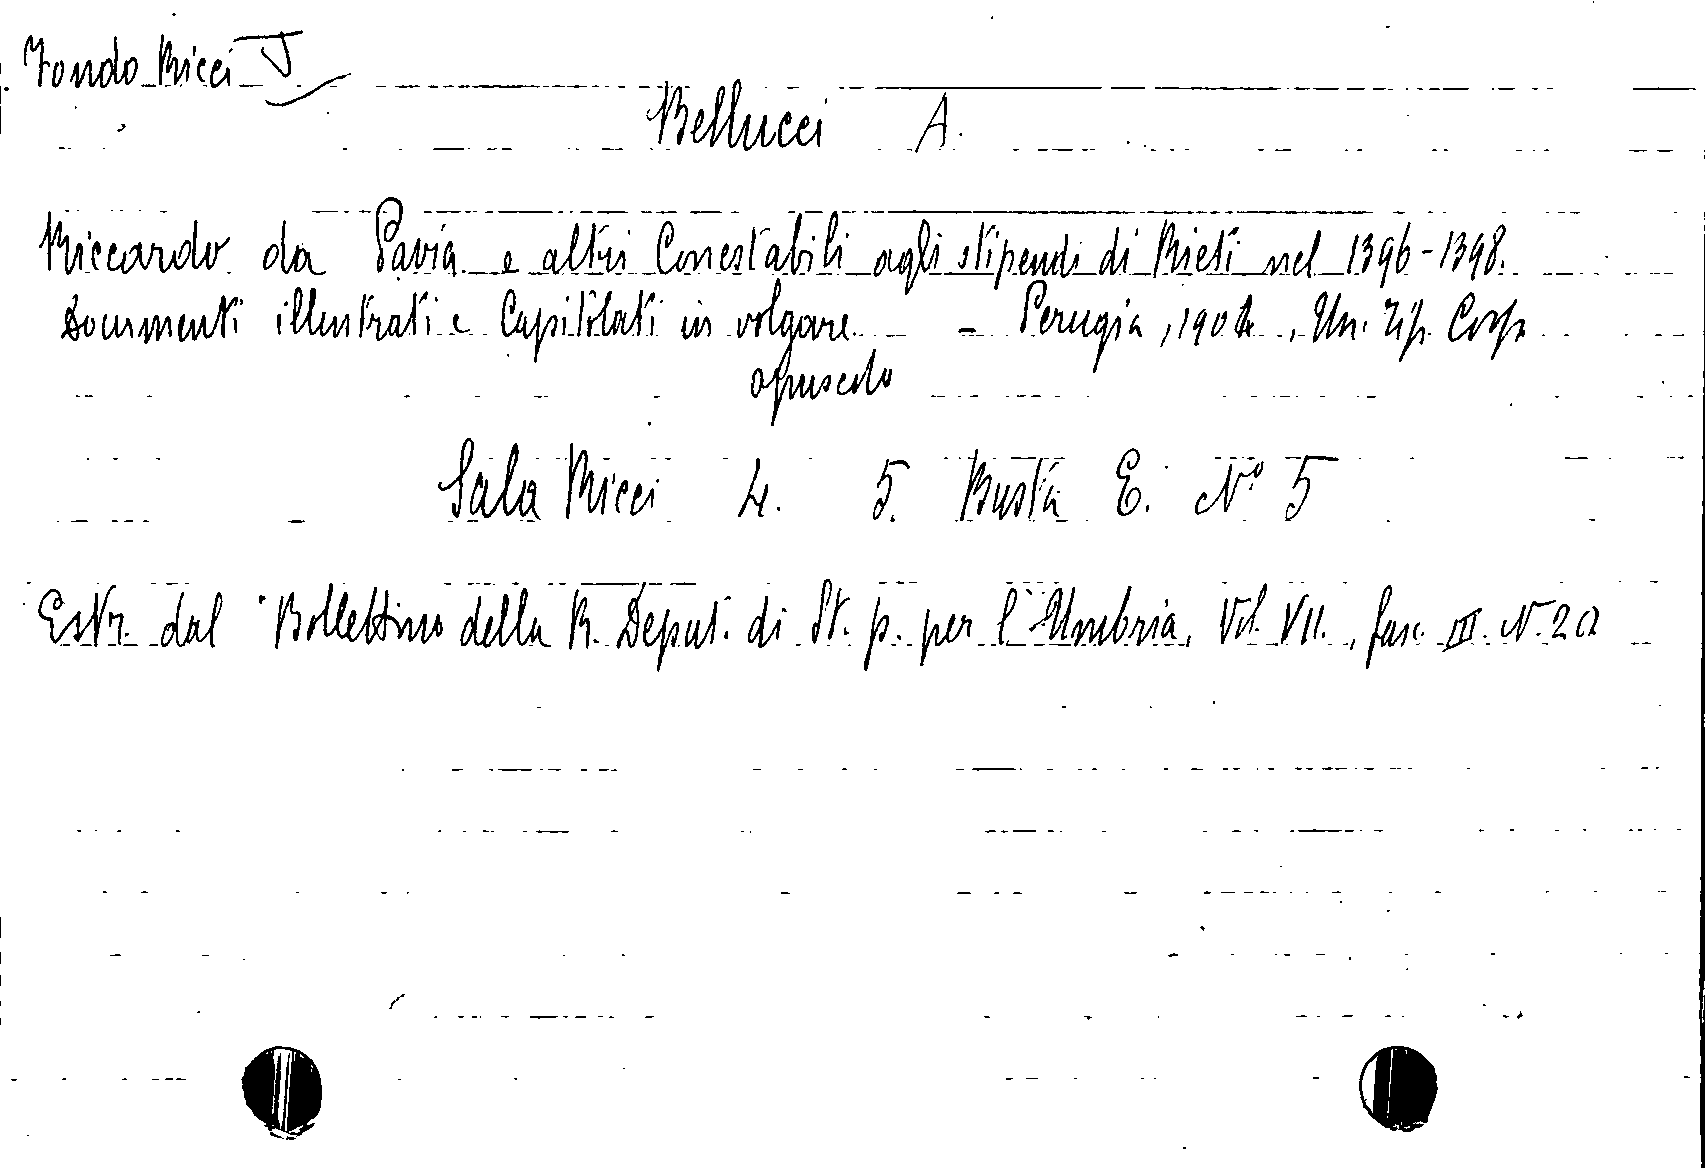 Fondo Ricci
Bellucci A.
Riccardo da Pavia e altri Conestabili agli stipendi di Rieti nel 1396-1398.
Documenti illustrati e Capitolati in volgare - Perugia, 1902, Un. Tip. Coop.
opuscolo
Sala Ricci 4. 5. Busta E. N° 5
Estr. dal Bollettino della R. Deput. di St. p. per l'Umbria, Vol. VII., fasc. III. N. 20